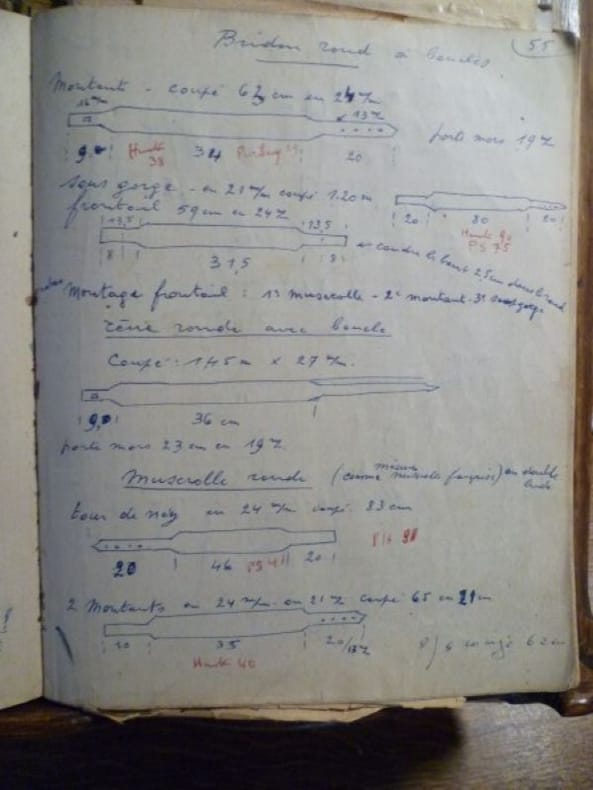 Bridon rond à boucles 55
Montants - coupé 63 cm en 24 m/m
16 m/m × 13 m/m
porte mors 19 m/m
9 Hunt 38 34 20
sous gorge - en 21 m/m coupé 1.20 m
frontail 59 cm en 24 m/m
13,5 13,5
20 80 20
Hunt 90
PS 75
8 31,5 8
coudre le bout 2,5 cm dans le rond
Montage frontail : 1° muserolle - 2° montant - 3° sous gorge
rêne ronde avec boucle
Coupé : 1,45 m × 27 m/m.
9 36 cm
porte mors 23 cm en 19 m/m
Muserolle ronde (comme muserolle française) ou double
tour de nez en 24 m/m coupé 83 cm
20 46 PS 41 20
2 Montants en 24 m/m ou 21 m/m coupé 65 en 21 m
10 35 20/13 m/m
Hunt 40